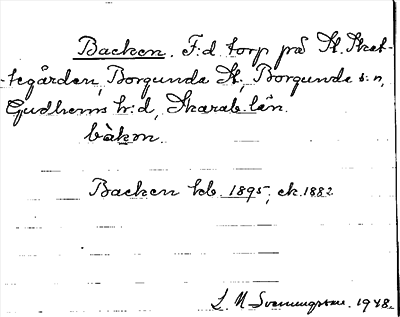 Backen. F:d torp på St. Sket-
tegården, Borgunda St., Borgunda s:n,
Gudhems h:d, Skarab. län.
bàkən.
Backen kb. 1895, ek. 1882
L. M. Svenungsson. 1948.